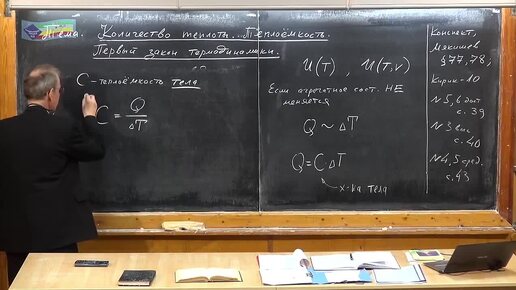 Тема. Количество теплоты. Теплоёмкость.
Первый закон термодинамики.
C - теплоёмкость тела
C = Q / ΔT
U(T) , U(T,V)
Если агрегатное сост. НЕ
меняется
Q ~ ΔT
Q = C·ΔT
х-ка тела
Конспект,
Мякишев
§77,78,
Кирик-10
№5,6 дост
с. 39
№3 выс
с. 40
№4,5 сред.
с. 43